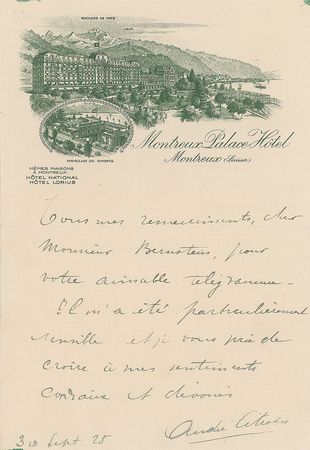 ROCHERS DE NAYE
CAUX
PAVILLON DE SPORTS
Montreux Palace Hôtel
Montreux (Suisse)
MÊMES MAISONS
A MONTREUX:
HÔTEL NATIONAL
HÔTEL LORIUS
Tous mes remerciements, cher
Monsieur Bernstein, pour
votre aimable télégramme -
Il m'a été particulièrement
sensible et je vous prie de
croire à mes sentiments
cordiaux et dévoués
André Citroën
30 Sept 25